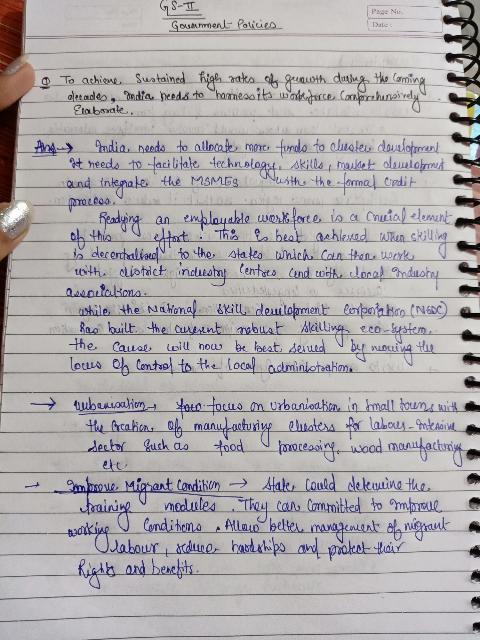 GS-II
Government Policies
Page No.
Date:
Q To achieve sustained high rates of growth during the coming
decades, India needs to harness its workforce comprehensively.
Elaborate.
Ans → India needs to allocate more funds to cluster development
It needs to facilitate technology, skills, market development
and integrate the MSMEs with the formal credit
process.
Readying an employable workforce is a crucial element
of this effort. This is best achieved when skilling
is decentralised to the states which can then work
with district industry centres and with local industry
associations.
while the National skill development corporation (NSDC)
has built the current robust skilling eco-system.
the cause will now be best served by moving the
locus of control to the local administration.
→ Urbanisation → focus on urbanisation in small towns with
the creation of manufacturing clusters for labour-Intensive
sector such as food processing, wood manufacturing
etc.
→ Improve Migrant Condition → state could determine the
training modules. They can committed to improve
working conditions. Allow better management of migrant
labour, reduce hardships and protect their
Rights and benefits.